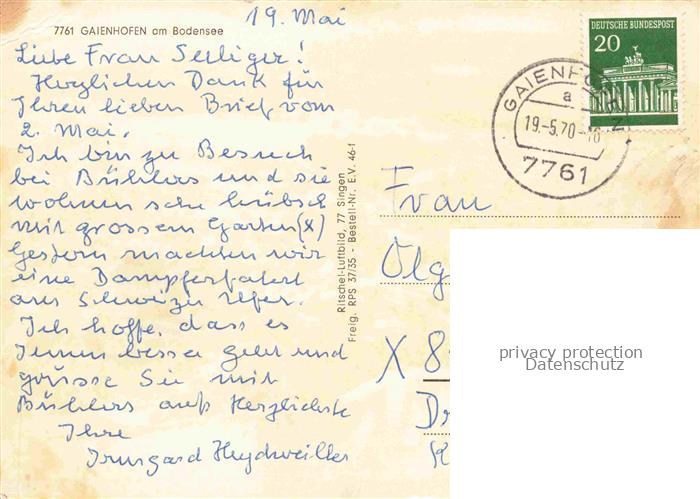 19. Mai
7761 GAIENHOFEN am Bodensee
Liebe Frau Seeliger!
Herzlichen Dank für
Ihren lieben Brief vom
2. Mai.
Ich bin zu Besuch
bei Bühlers und sie
wohnen sehr hübsch
mit grossem Garten (X)
Gestern machten wir
eine Dampferfahrt
am Schweizer Ufer.
Ich hoffe, dass es
Ihnen besser geht und
grüsse Sie mit
Bühlers aufs Herzlichste
Ihre
Irmgard
Ritschel-Luftbild, 77 Singen
Freig. RPS 37/35 - Bestell-Nr. E.V. 46-1
DEUTSCHE BUNDESPOST
20
GAIENHOFEN
a
19.-5.70-16
7761
Frau
Olg
X 8
Dr
privacy protection
Datenschutz